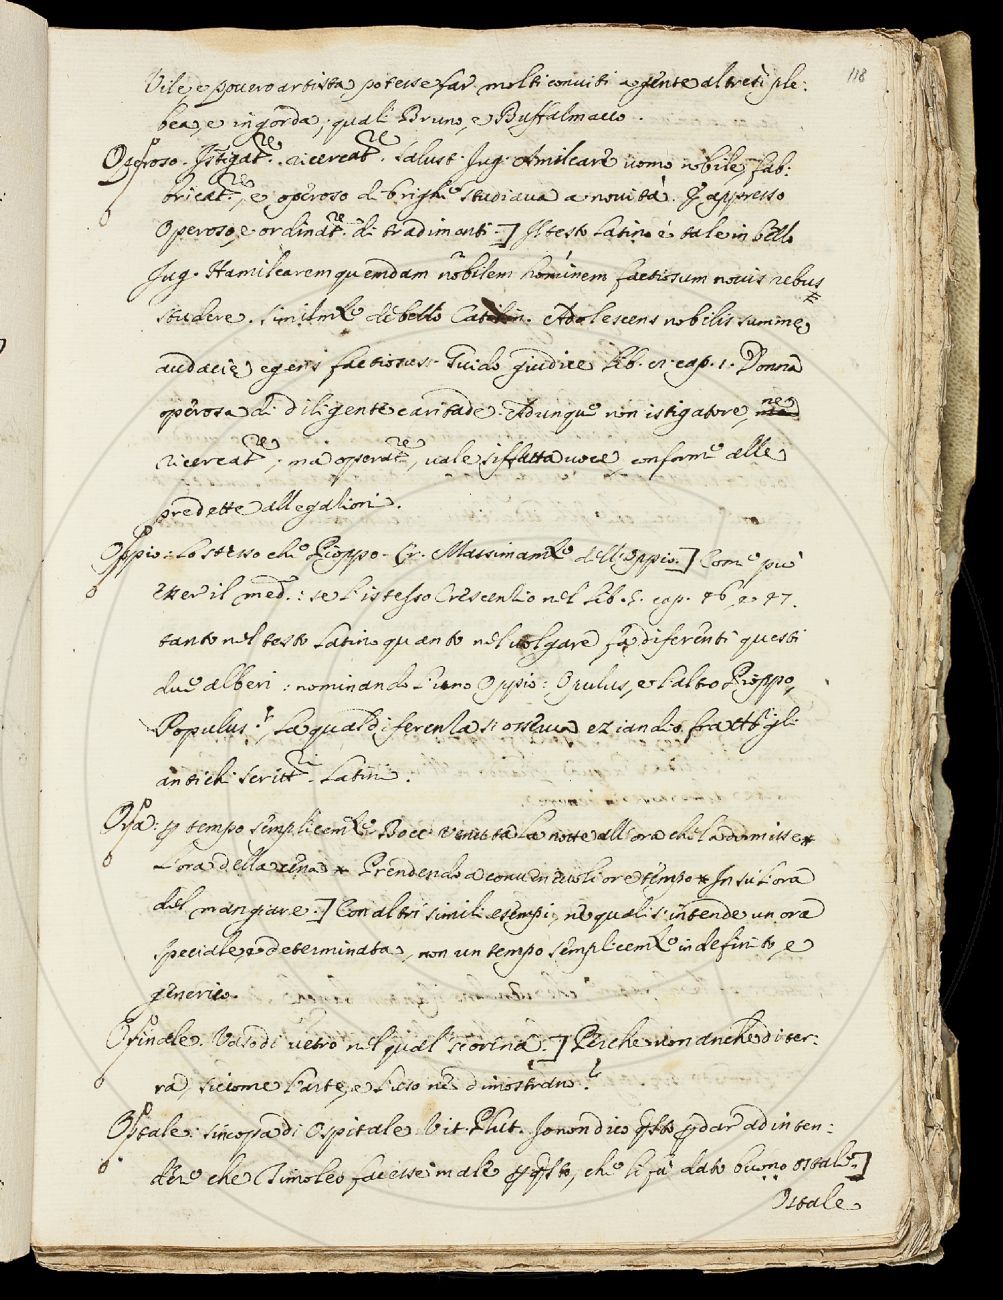 118
Vile, e povero artista, potesse far molti conviti a gente altresì ple:
bea, e ingorda; quali Bruno, e Buffalmacco.
Operoso. Istigat.re ricercat.re Salust. Jug. Amilcare uomo nobile, fab:
bricat.re, e operoso di brighe studiava a novità. E appresso
Operoso, e ordinat.re di tradimenti.] Il testo Latino è tale in bello
Jug. Hamilcarem quemdam nobilem hominem factiosum novis rebus
studere. Similm.te de bello Catilin. Adolescens nobilis summe
audacię egens factiosus. Guido giudice lib. cap. 1. Donna
operosa di diligente caritade. Adunque non istigatore, ne
ricercat.re, ma operat.re, vale siffatta voce, conforme alle
predette allegationi.
Oppio: lo stesso che Pioppo. Cr. Massimam.te dell'oppio.] Come può
esser il med.o: se l'istesso Crescentio nel lib. 5. cap. 46, e 47.
tanto nel testo Latino quanto nel volgare fa diferenti questi
due alberi: nominando l'uno Oppio: Opulus, e l'altro Pioppo,
Populus? La qual diferenza si osserva eziandio fra gli
antichi Scritt.ri Latini.
Ora: p tempo semplicem.te Bocc. Venuta la notte all'ora che la
L'ora della cena * Prendendo a convenevoli ore tempo * In su l'ora
del mangiare.] Con altri simili esempi, ne quali s'intende un ora
speciale, e determinata, non un tempo semplicem.te indefinito, e
generico.
Orinale. Vaso di vetro nel qual si orina.] Perche non anche di ter:
ra, siccome l'arte, e l'uso ne dimostrano?
Ostale: sincopa di Ospitale. Vit. Plut. Io non dico qsto p dar ad inten:
dere che Timoleo facesse male p qsto, che li fu dato buono ostale.]
Ostale